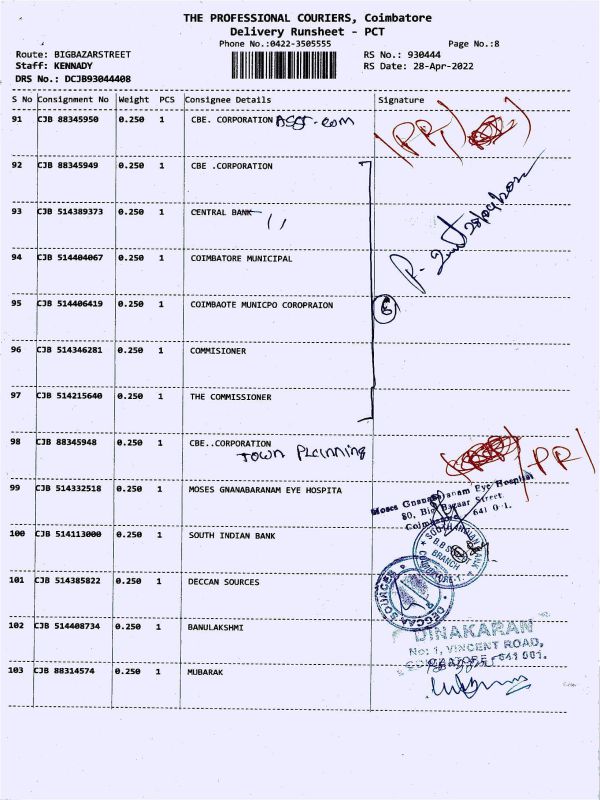 THE PROFESSIONAL COURIERS, Coimbatore
Delivery Runsheet - PCT
Phone No.:0422-3505555 Page No.:8
Route: BIGBAZARSTREET RS No.: 930444
Staff: KENNADY RS Date: 28-Apr-2022
DRS No.: DCJB93044408
S No Consignment No Weight PCS Consignee Details Signature
91 CJB 88345950 0.250 1 CBE. CORPORATION ASST. COM
PP
92 CJB 88345949 0.250 1 CBE .CORPORATION
93 CJB 514389373 0.250 1 CENTRAL BANK
94 CJB 514404067 0.250 1 COIMBATORE MUNICIPAL
95 CJB 514406419 0.250 1 COIMBAOTE MUNICPO COROPRAION 6
96 CJB 514346281 0.250 1 COMMISIONER
97 CJB 514215640 0.250 1 THE COMMISSIONER
98 CJB 88345948 0.250 1 CBE..CORPORATION
TOWN PLANNING
PP
99 CJB 514332518 0.250 1 MOSES GNANABARANAM EYE HOSPITA
Moses Gnanabaranam Eye Hospital
80, Big Bazaar Street
Coimbatore 641 001.
100 CJB 514113000 0.250 1 SOUTH INDIAN BANK
SOUTH INDIAN BANK
BRANCH
101 CJB 514385822 0.250 1 DECCAN SOURCES
DECCAN SOURCES
102 CJB 514408734 0.250 1 BANULAKSHMI
DINAKARAN
No: 1, VINCENT ROAD,
COIMBATORE - 641 001.
103 CJB 88314574 0.250 1 MUBARAK